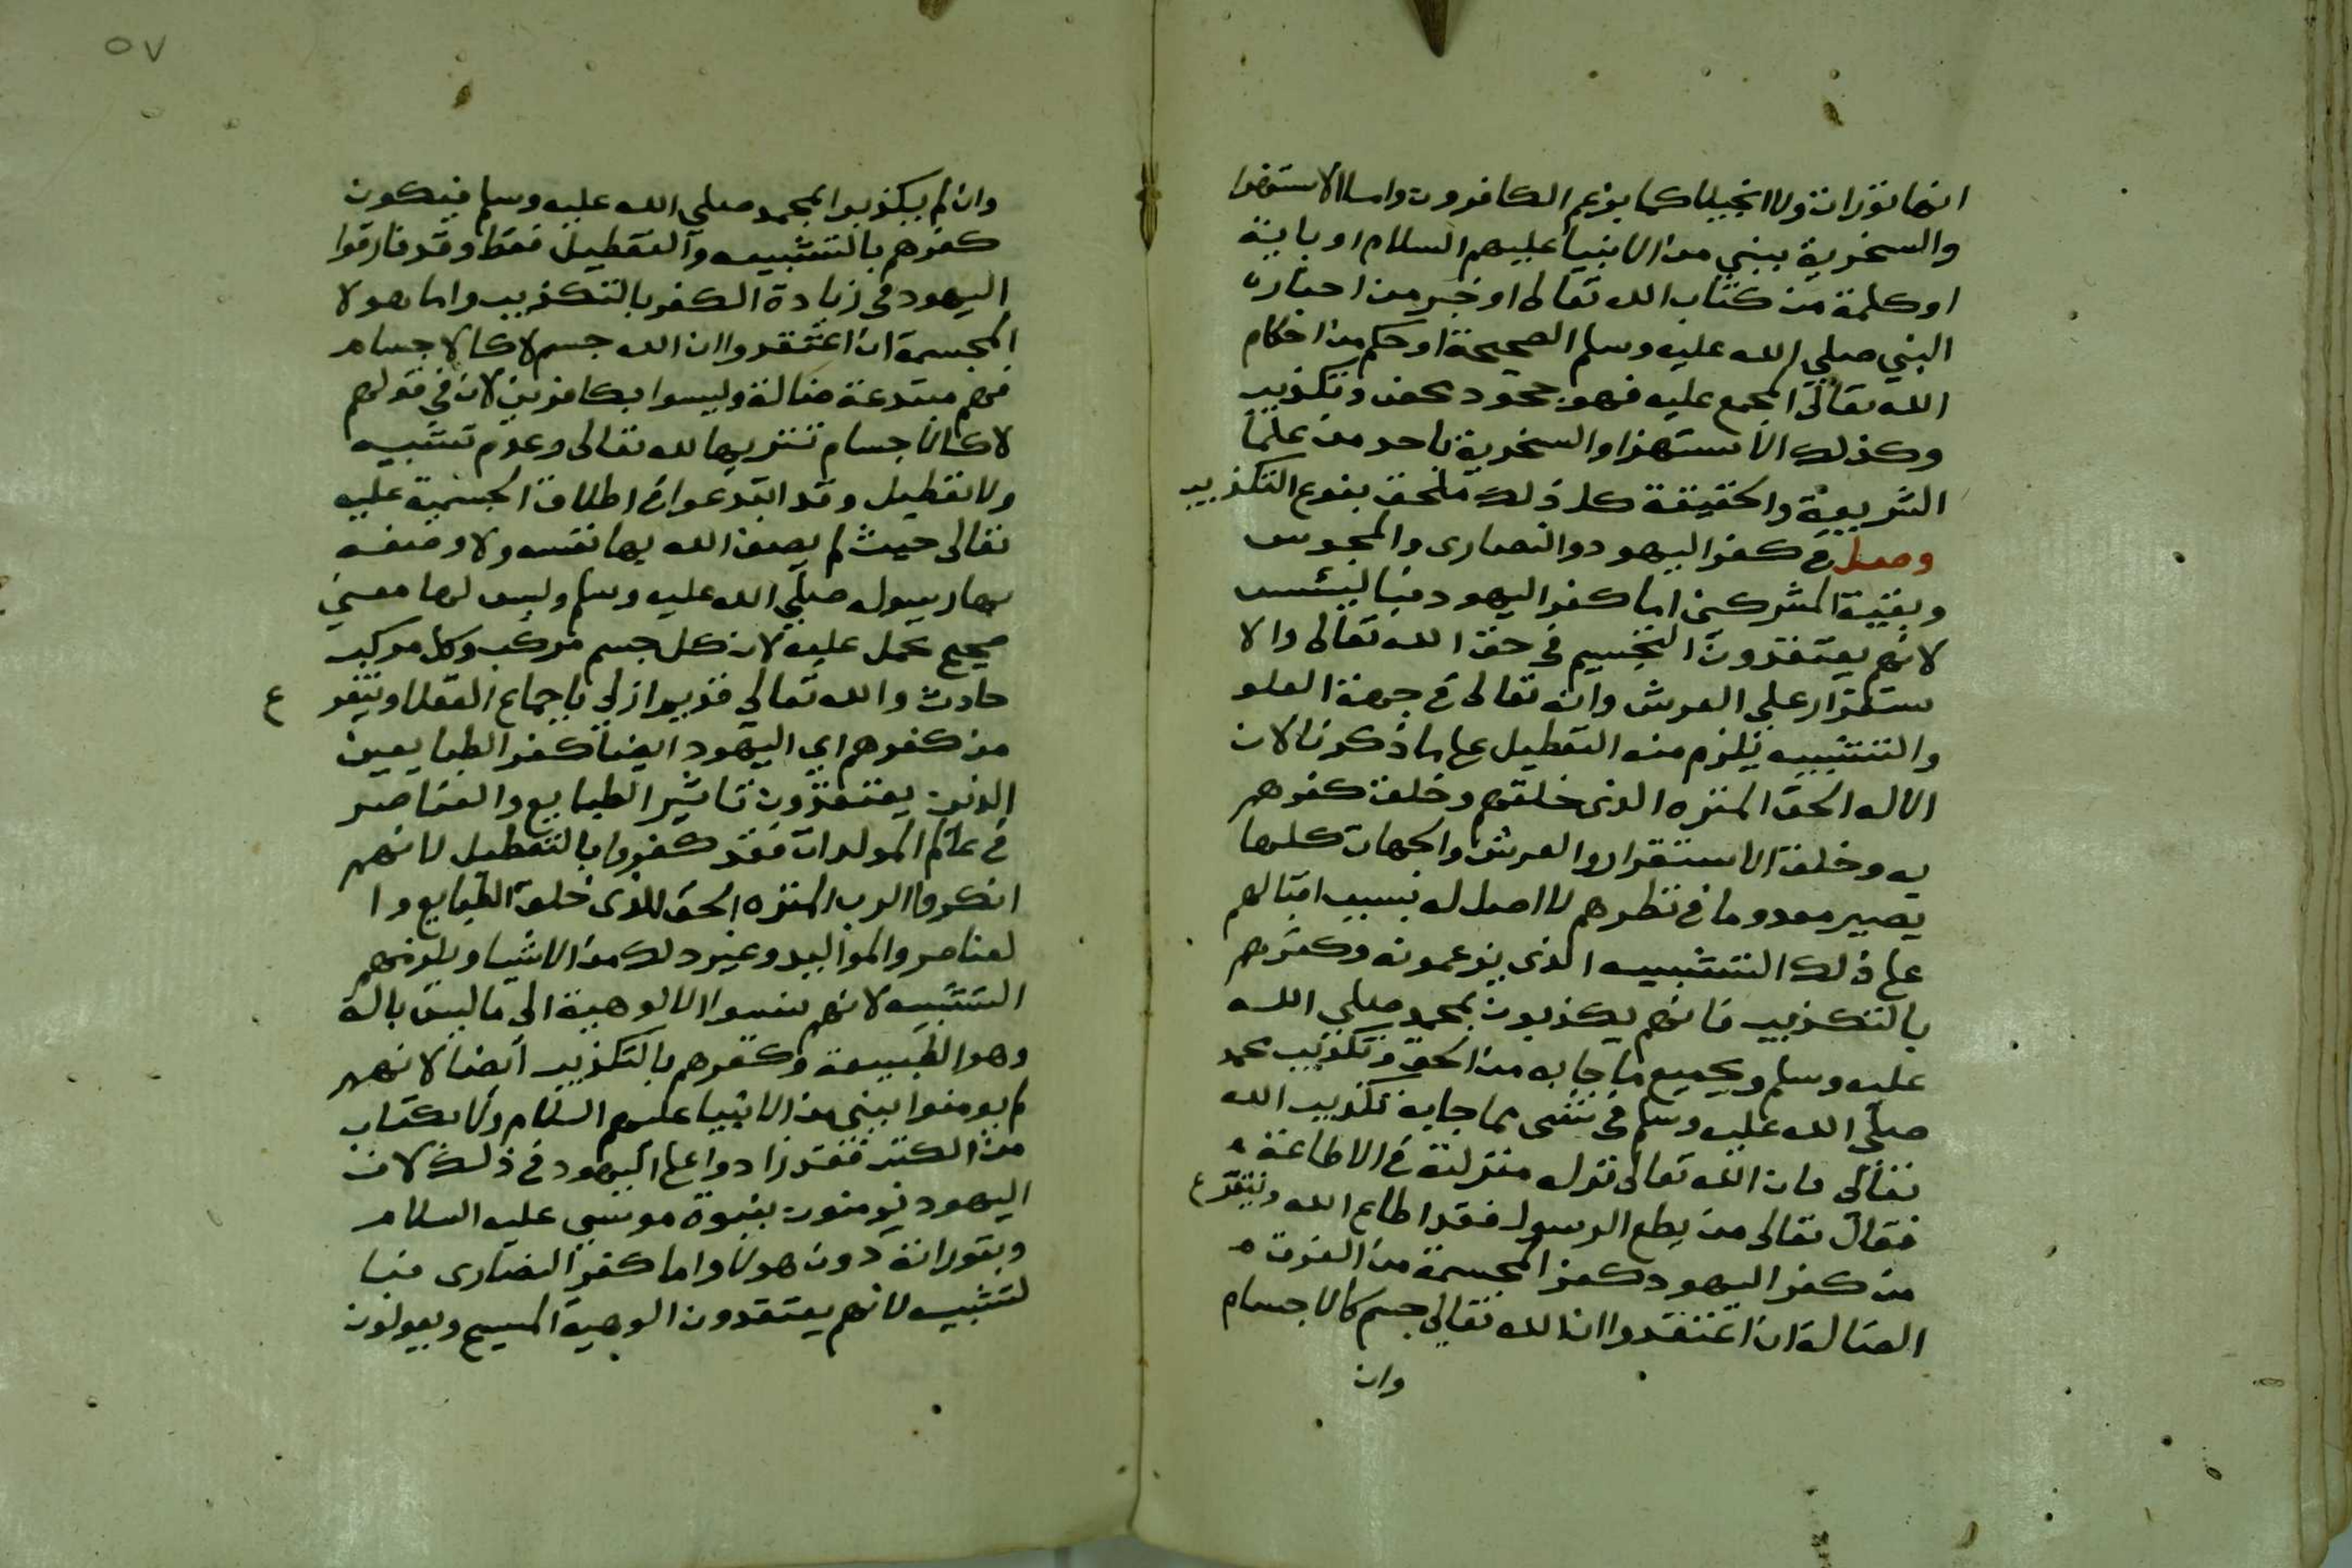 انها توراة ولا انجيلا كما يزعم الكافرون واما الاستهزا
والسخرية بنبي من الانبيا عليهم السلام او باية
او كلمة من كتاب الله تعالى او خبر من اخباره
النبي صلى الله عليه وسلم الصحيحة او حكم من احكام
الله تعالى المجمع عليه فهو جحود محض وتكذيب
وكذلك الاستهزا والسخرية باحد من علما
الشريعة والحقيقة كل ذلك ملحق بنوع التكذيب
وصل في كفر اليهود والنصارى والمجوس
وبقية المشركين اما كفر اليهود فبا لتشبيه
لانهم يعتقدون التجسيم في حق الله تعالى والا
ستقرار على العرش وانه تعالى في جهة العلو
والتشبيه يلزم منه التعطيل على ما ذكرنا لان
الاله الحق المنزه الذى خلقهم وخلق كفرهم
به وخلق الاستقرار والعرش والجهات كلها
يصير معدوما في نظرهم لا اصل له بسبب اقبالهم
على ذلك التشبيه الذى يزعمونه وكفرهم
بالتكذيب فانهم يكذبون بمحمد صلى الله
عليه وسلم وبجميع ما جا به من الحق وتكذيب محمد
صلى الله عليه وسلم في شى مما جا به تكذيب الله
تعالى فان الله تعالى نزله منزلته في الاطاعة
فقال تعالى من يطع الرسول فقد اطاع الله ويتفرع
من كفر اليهود كفر المجسمة من الفرق
الضالة ان اعتقدوا ان الله تعالى جسم كالاجسام
وان
٥٧
وان لم يكذبوا بمحمد صلى الله عليه وسلم فيكون
كفرهم بالتشبيه والتعطيل فقط وقد فارقوا
اليهود في زيادة الكفر بالتكذيب واما هولا
المجسمة ان اعتقدوا ان الله جسم لا كالاجسام
فهم مبتدعة ضالة وليسوا بكافرين لان في قولهم
لا كالاجسام تنزيها لله تعالى وعدم تشبيه
ولا تعطيل وقد ابتدعوا في اطلاق الجسمية عليه
تعالى حيث لم يصف الله بها نفسه ولا وصفه
بها رسوله صلى الله عليه وسلم وليس لها معنى
صحيح يحمل عليه لان كل جسم مركب وكل مركب
حادث والله تعالى قديم ازلي باجماع العقلا ويتفر
ع
من كفرهم اي اليهود ايضا كفر الطبايعين
الذين يعتقدون تاثير الطبايع والعناصر
في عالم المولدات فقد كفروا بالتعطيل لانهم
انكروا الرب المنزه الحق الذى خلق الطبايع وا
لعناصر والمواليد وغير ذلك من الاشيا ويلزمهم
التشبيه لانهم نسبوا الالوهية الى ما ليس باله
وهو الطبيعة وكفرهم بالتكذيب ايضا لانهم
لم يومنوا بنبي من الانبيا عليهم السلام ولا بكتاب
من الكتب فقد زادوا على اليهود في ذلك لان
اليهود يومنون بنبوة موسى عليه السلام
وبتوراته دون هولا واما كفر النصارى فبا
لتشبيه لانهم يعتقدون الوهية المسيح ويقولون